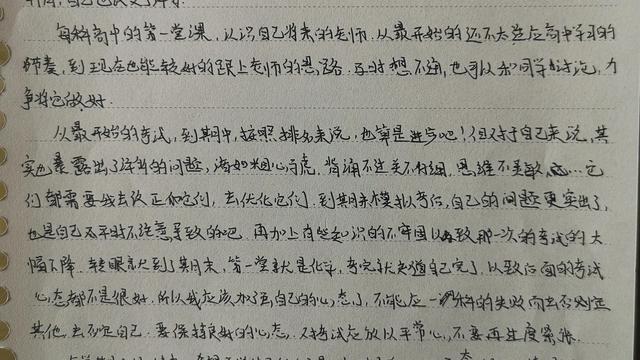 每科高中的第一堂课,认识自己将来的老师.从最开始的还不太适应高中学习的
节奏,到现在也能较好的跟上老师的思路.及时想不通,也可以和同学讨论,力
争将它做好.
从最开始的考试,到期中,按照排名来说,也算是进步吧!但对于自己来说,其
实也暴露出了许多的问题,诸如粗心马虎,背诵不过关不仔细,思维不灵敏,……它
们都需要我去改正它们,去优化它们.到期末模拟考试,自己的问题更突出了,
也是自己太平时不注意导致的吧.再加上有些知识的不牢固以致那一次的考试的大
幅下降.转眼就到了期末,第一堂就是化学,考完就知道自己完了,以致后面的考试
心态都不是很好.所以我应该加强自己的心态了,不能应一科的失败而去否定
其他,去否定自己.要保持良好的心态,对考试应放以平常心,不要再过度紧张.